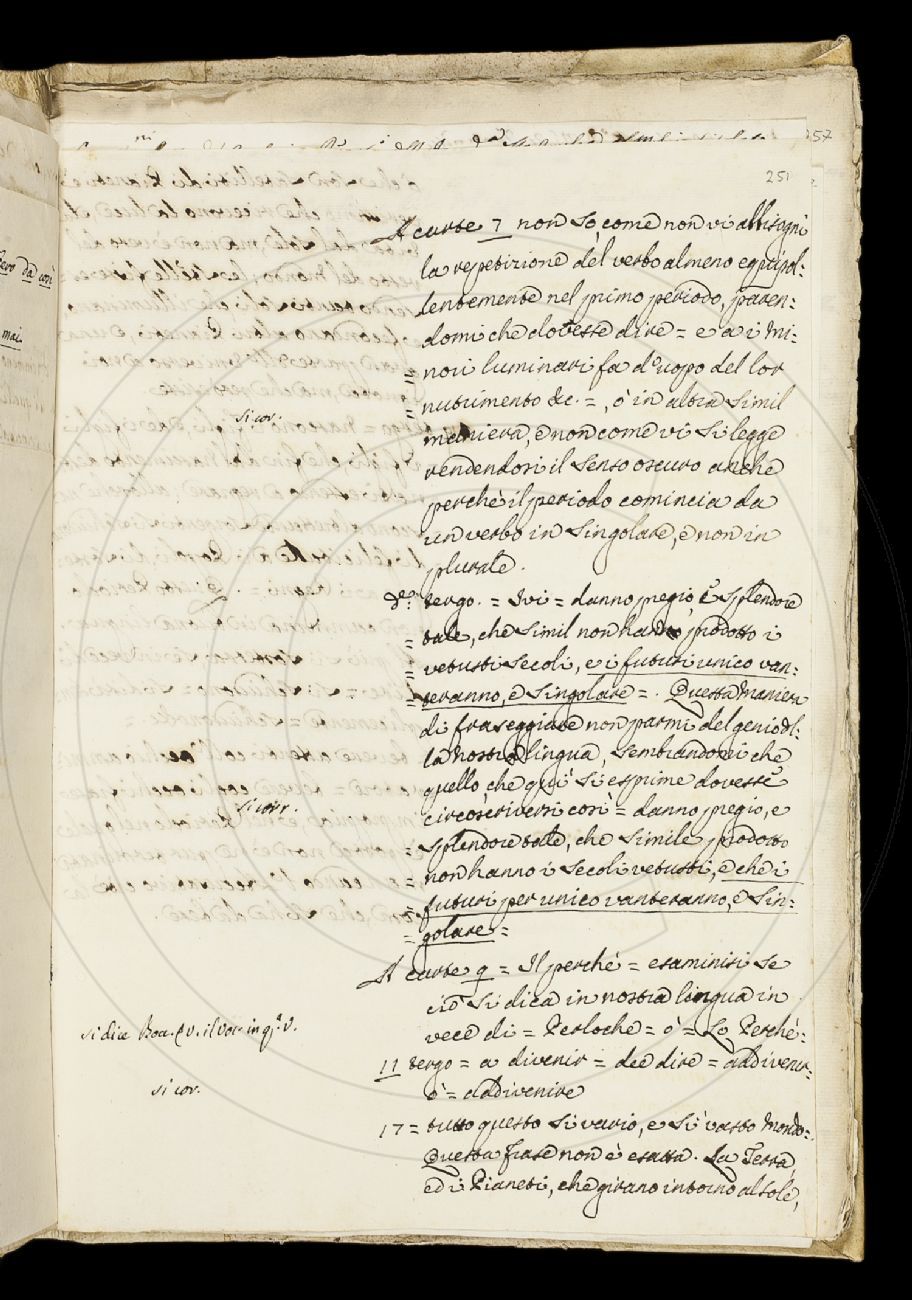 257
251
A carte 7 non so come non vi abbisogni
la repetizione del verbo almeno equipol:
lentemente nel primo periodo, paren:
domi che dovesse dire = e a i Mi:
= nori luminari fa d'uopo del lor
= nutrimento &c. =, ò in altra simil
si cor.
maniera, e non come vi si legge
rendendosi il senso oscuro anche
perchè il periodo comincia da
un verbo in singolare, e non in
plurale.
d.º tergo. = Ivi = danno pregio, e splendore
= tale, che simil non hanno prodotto i
= vetusti secoli, e i futuri unico van:
= teranno, e singolare = . Questa maniera
di fraseggiare non parmi del genio del:
la nostra lingua, sembrandomi che
quello che qui si esprime dovesse
si corr.
circoscriversi così = danno pregio, e
= splendore tale, che simile prodotto
= non hanno i secoli vetusti, e che i
= futuri per unico vanteranno, e sin:
= golare =
A carte 9 = Il perchè = esaminisi se
ciò si dica in nostra lingua in
si dice
vece di = Perloche = ò = Lo Perchè =
11 tergo = a divenir = dee dire = addivenir =
si cor.
ò = addivenire
17 = tutto questo sì vario, e sì vasto Mondo =
Questa frase non è esatta. La Terra,
ed i Pianeti, che girano intorno al sole,